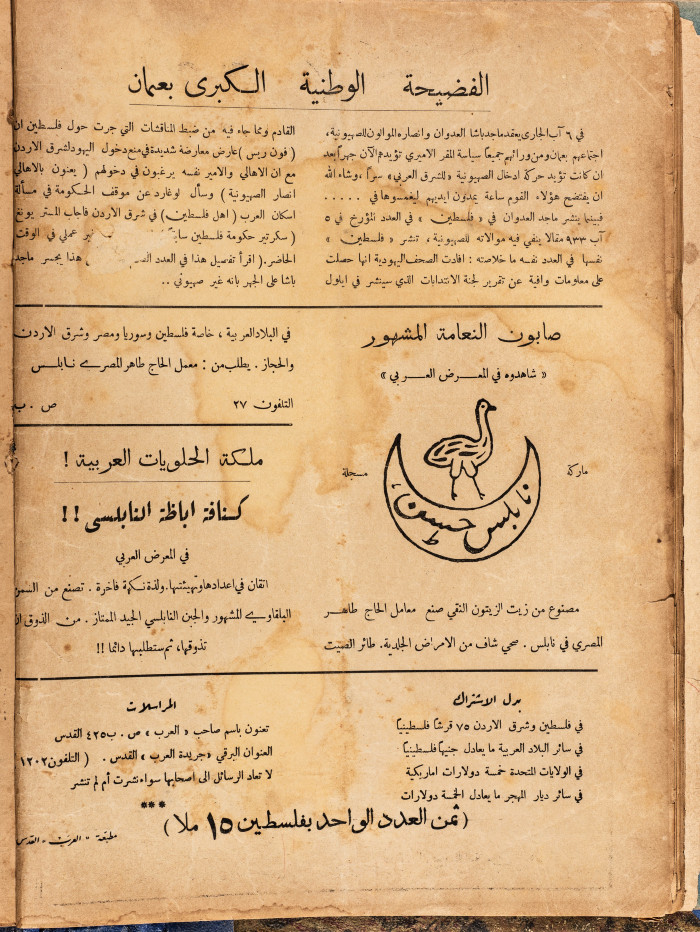 الفضيحة الوطنية الكبرى بعمان
في ٦ آب الجاري يعقد ماجد باشا العدوان وانصاره الموالون للصهيونية،
اجتماعهم بعمان ومن ورائهم جميعاً سياسة المقر الاميري تؤيدهم الآن جهراً بعد
ان كانت تؤيد حركة ادخال الصهيونية «للشرق العربي» سراً، وشاء الله
ان يفتضح هؤلاء القوم ساعة يمدون ايديهم ليغمسوها في . . . . .
فبينما ينشر ماجد العدوان في «فلسطين» في العدد المؤرخ في ٥
آب ٩٣٣ مقالا ينفي فيه موالاته للصهيونية، تنشر «فلسطين»
نفسها في العدد نفسه ما خلاصته : افادت الصحف اليهودية انها حصلت
على معلومات وافية عن تقرير لجنة الانتدابات الذي سينشر في ايلول
القادم ومما جاء فيه من ضبط المناقشات التي جرت حول فلسطين ان
( فون ريس ) عارض معارضة شديدة في منع دخول اليهود لشرق الاردن
مع ان الاهالي والامير نفسه يرغبون في دخولهم ( يعنون بالاهالي
انصار الصهيونية ) وسأل لوغارد عن موقف الحكومة في مسألة
اسكان العرب ( اهل فلسطين ) في شرق الاردن فاجاب المستر يونغ
( سكرتير حكومة فلسطين غير عملي في الوقت
الحاضر . ( اقرأ تفصيل هذا في العدد هذا يجسر ماجد
باشا على الجهر بانه غير صهيوني . .
صابون النعامة المشهور
« شاهدوه في المعرض العربي »
ماركة مسجلة
نابلس حسن
مصنوع من زيت الزيتون النقي صنع معامل الحاج طاهر
المصري في نابلس . صحي شاف من الامراض الجلدية. طائر الصيت
في البلاد العربية ، خاصة فلسطين وسوريا ومصر وشرق الاردن
والحجاز . يطلب من : معمل الحاج طاهر المصري نابلس
التلفون ٢٧ ص . ب
ملكة الحلويات العربية !
كنافة اباظة النابلسي !!
في المعرض العربي
اتقان في اعدادها وتهيئتها. ولذة نكهة فاخرة . تصنع من السمن
البلقاوي المشهور والجبن النابلسي الجيد الممتاز . من الذوق ان
تذوقها، ثم ستطلبها دائما !!
بدل الاشتراك
في فلسطين وشرق الاردن ٧٥ قرشاً فلسطينياً
في سائر البلاد العربية ما يعادل جنيهاً فلسطينياً
في الولايات المتحدة خمسة دولارات اماريكية
في سائر ديار المهجر ما يعادل الخمسة دولارات
المراسلات
تعنون باسم صاحب «العرب» ص . ب ٤٢٥ القدس
العنوان البرقي «جريدة العرب» القدس . ( التلفون ١٢٠٢
لا تعاد الرسائل الى اصحابها سواء نشرت أم لم تنشر
***
(ثمن العدد الواحد بفلسطين ١٥ ملا)
مطبعة «العرب» - القدس